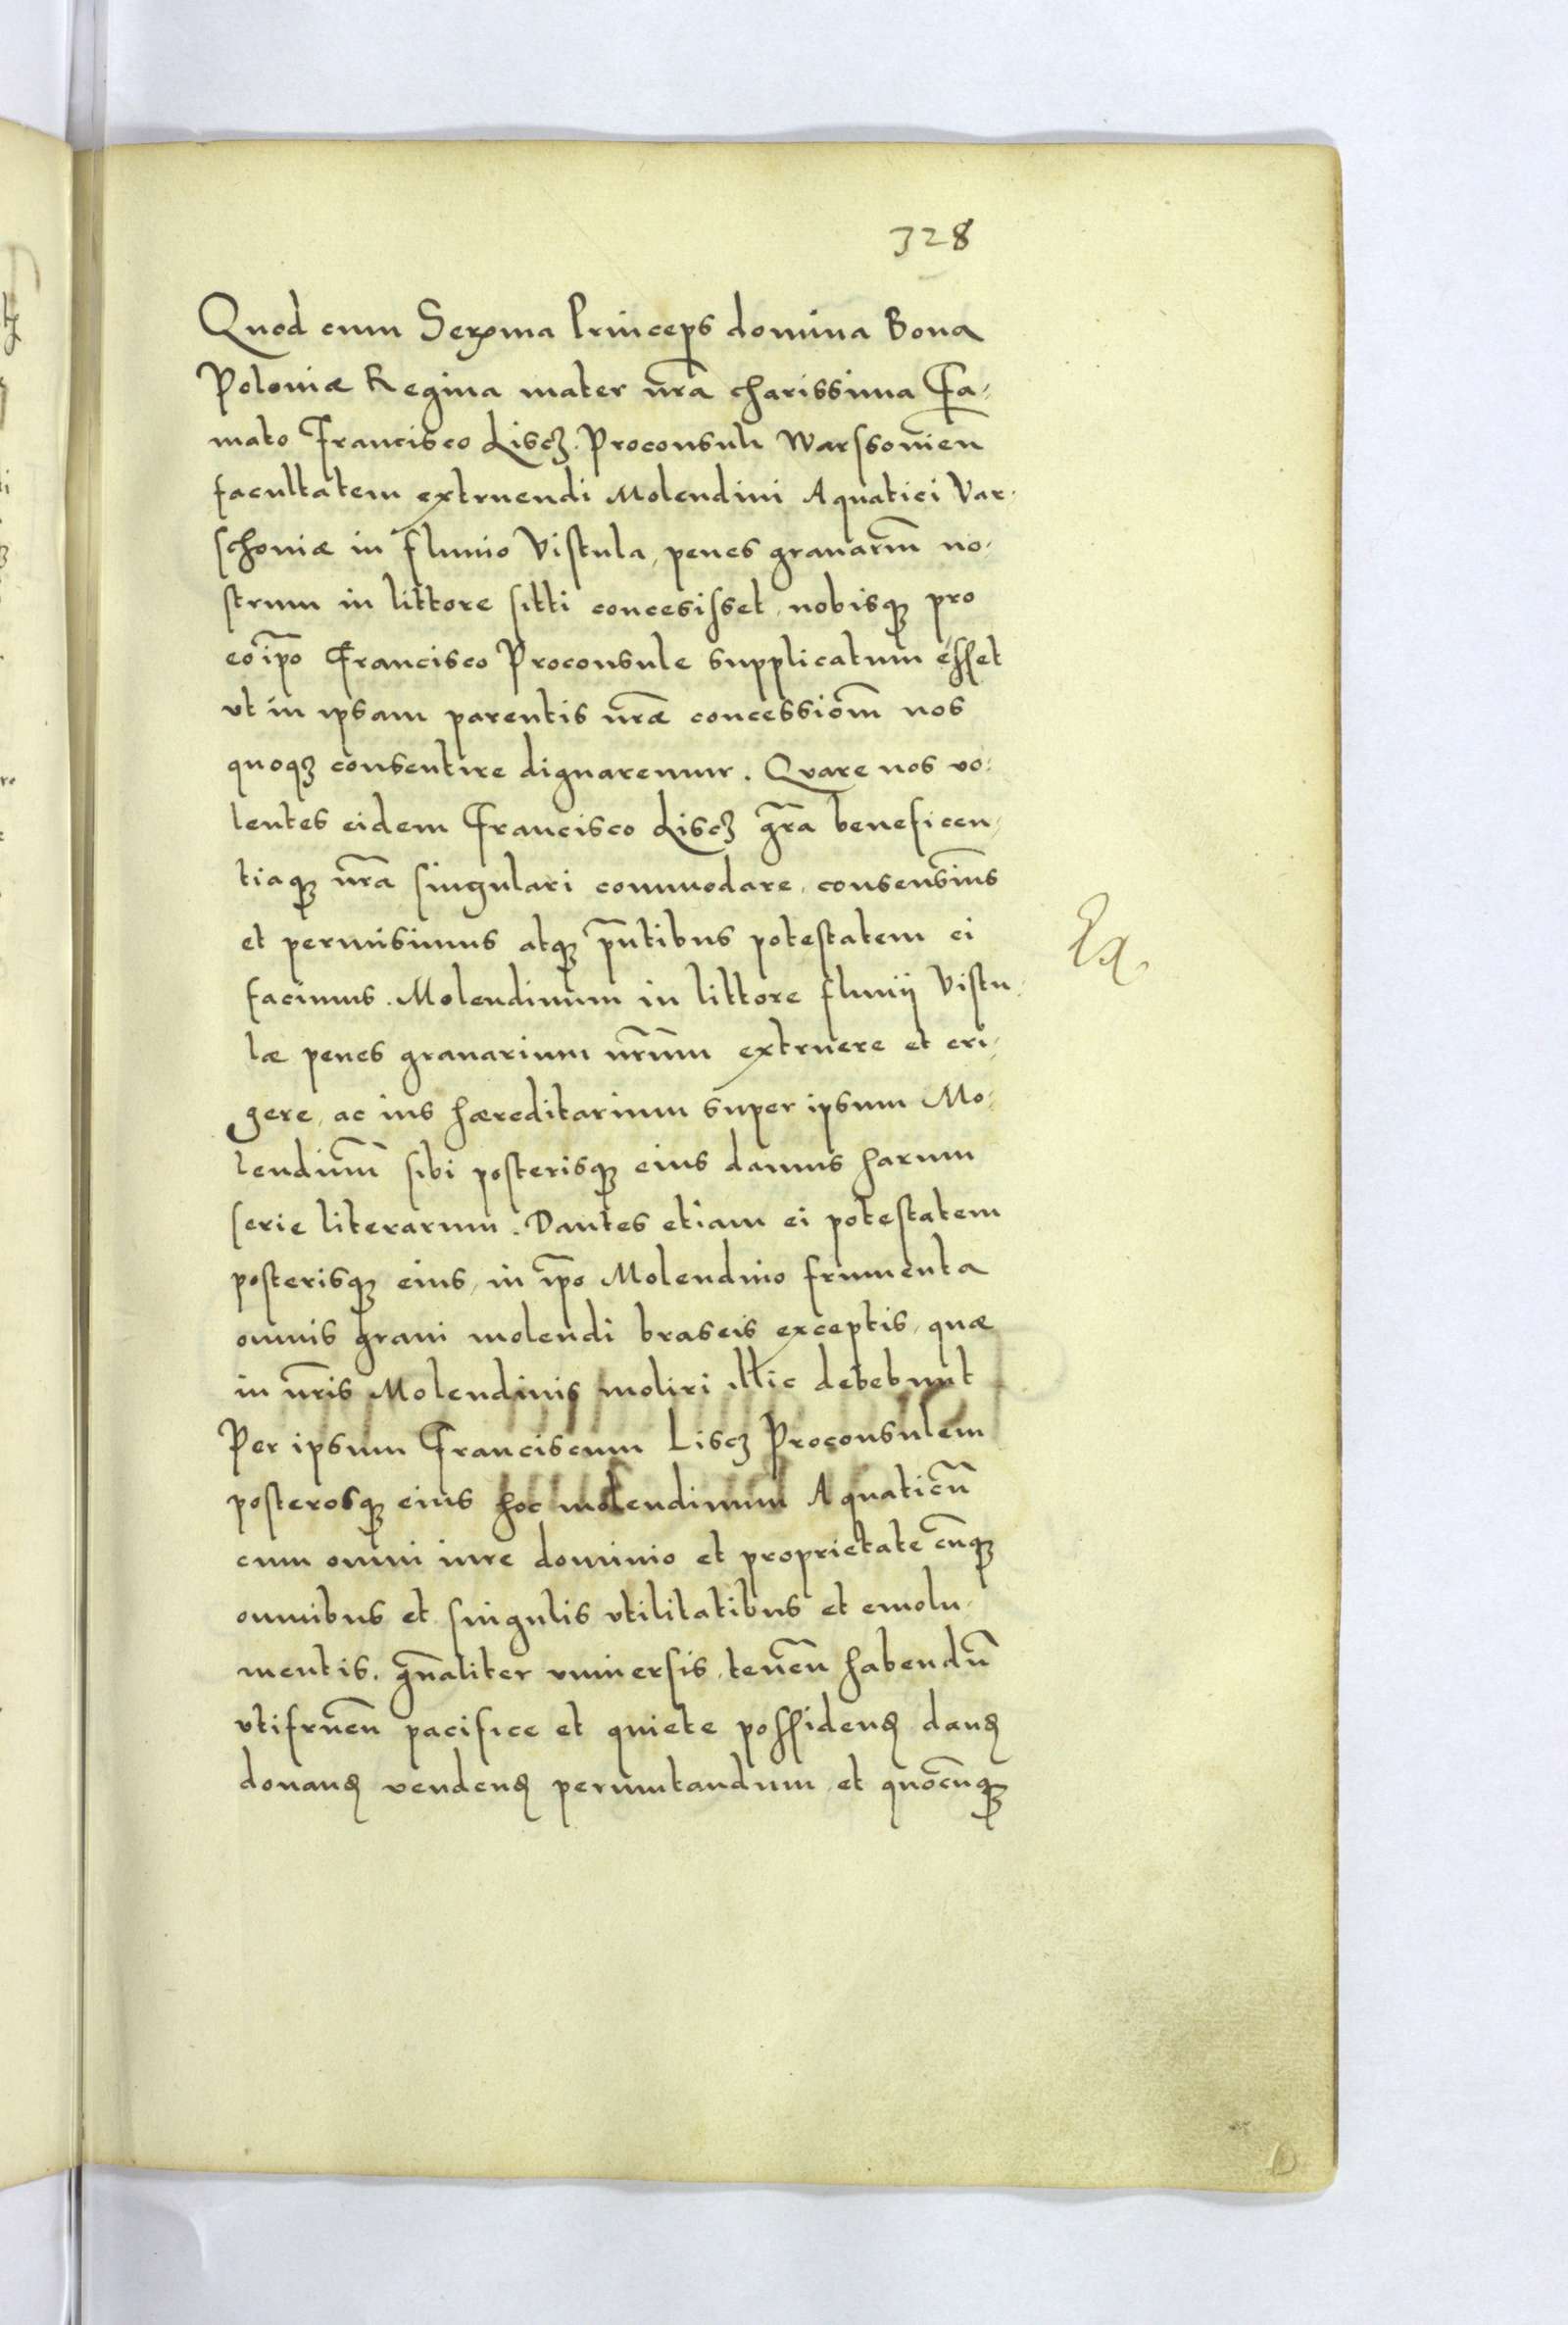 328
Quod cum Serma Princeps domina Bona
Poloniæ Regina mater nrã charissima Fa-
mato Francisco Liscz. Proconsuli Warssovien̄
facultatem extruendi Molendini Aquatici Var-
schoviæ in fluvio Vistula, penes granariũm no-
strum in littore sitti concesisset, nobisqȝ pro
eo ip̄o Francisco Proconsule supplicatum esset
ut in ipsam parentis nrãe concessiom̃ nos
quoqȝ consentire dignaremur. Quare nos vo-
lentes eidem Francisco Liscz grã beneficen-
tiaqȝ nrã singulari commodare, consensim̃us
et permisimus atqȝ pñtibus potestatem ei
facimus. Molendinum in littore fluvij Vistu-
læ penes granarium nrũm extruere et eri-
gere, ac ius hæreditarium super ipsum Mo-
lendinum̃ sibi posterisqȝ eius damus harum
serie literarum. Dantes etiam ei potestatem
posterisqȝ eius, in ip̄o Molendino frumenta
omnis grani molendi braseis exceptis, quæ
in nrĩs Molendinis moliri illic debebunt
Per ipsum Franciscum Liscz Proconsulem
posterosqȝ eius hoc molendinum Aquaticũ
cum omni iure dominio et proprietate cũqȝ
omnibus et singulis utilitatibus et emolu-
mentis, gñaliter universis, teneñ habendũ
utifrueñ pacifice et quiete possidenđ danđ
donanđ vendenđ permutandum et quocũqȝ